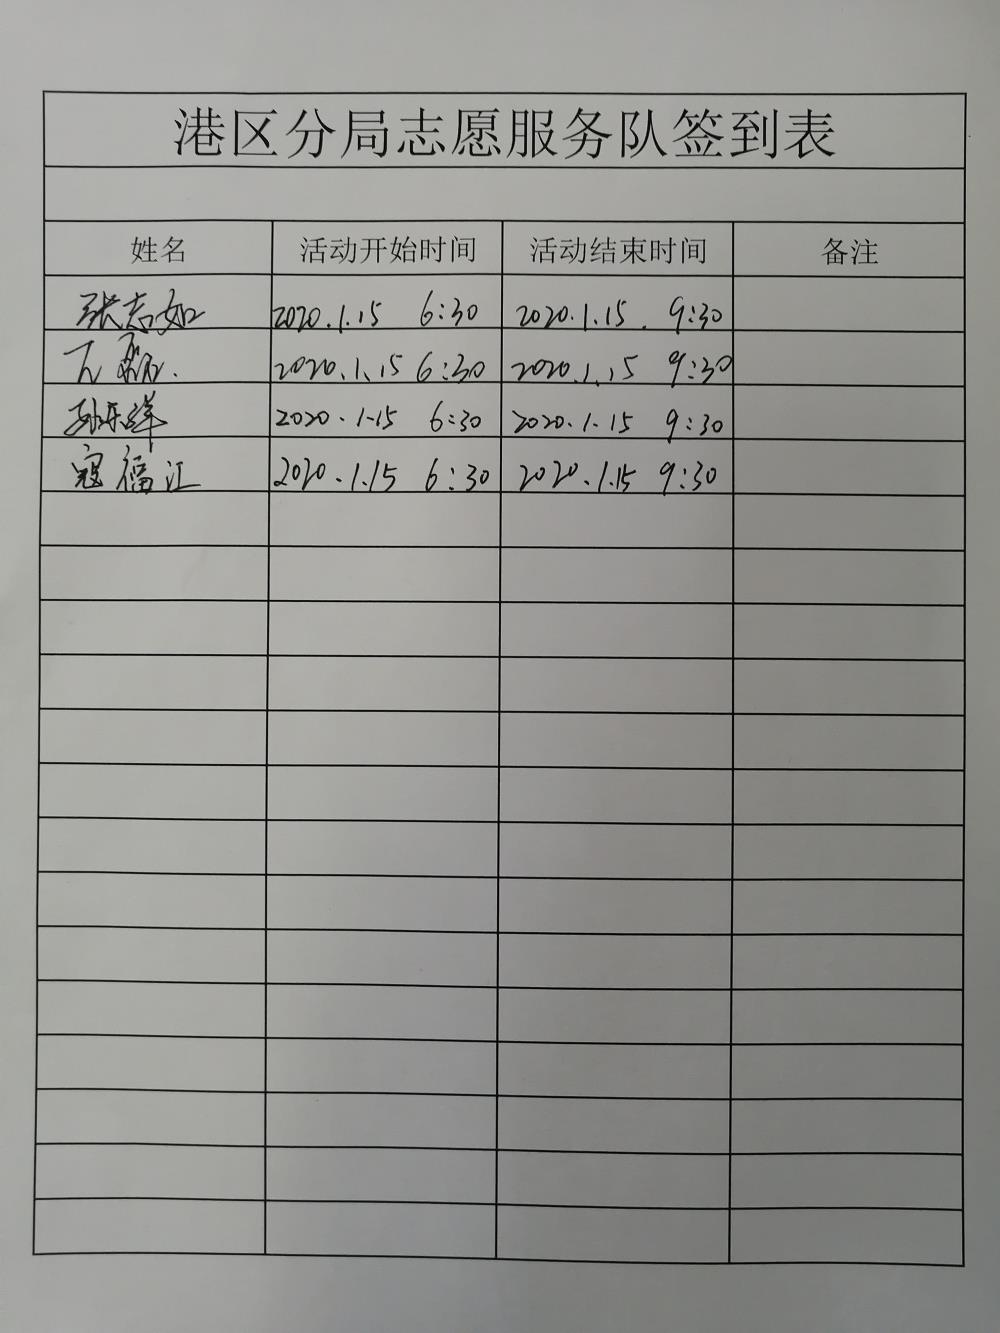 港区分局志愿服务队签到表
姓名 活动开始时间 活动结束时间 备注
张志如 2020.1.15 6:30 2020.1.15. 9:30
2020.1.15 6:30 2020.1.15 9:30
孙乐洋 2020.1.15 6:30 2020.1.15 9:30
寇福江 2020.1.15 6:30 2020.1.15 9:30